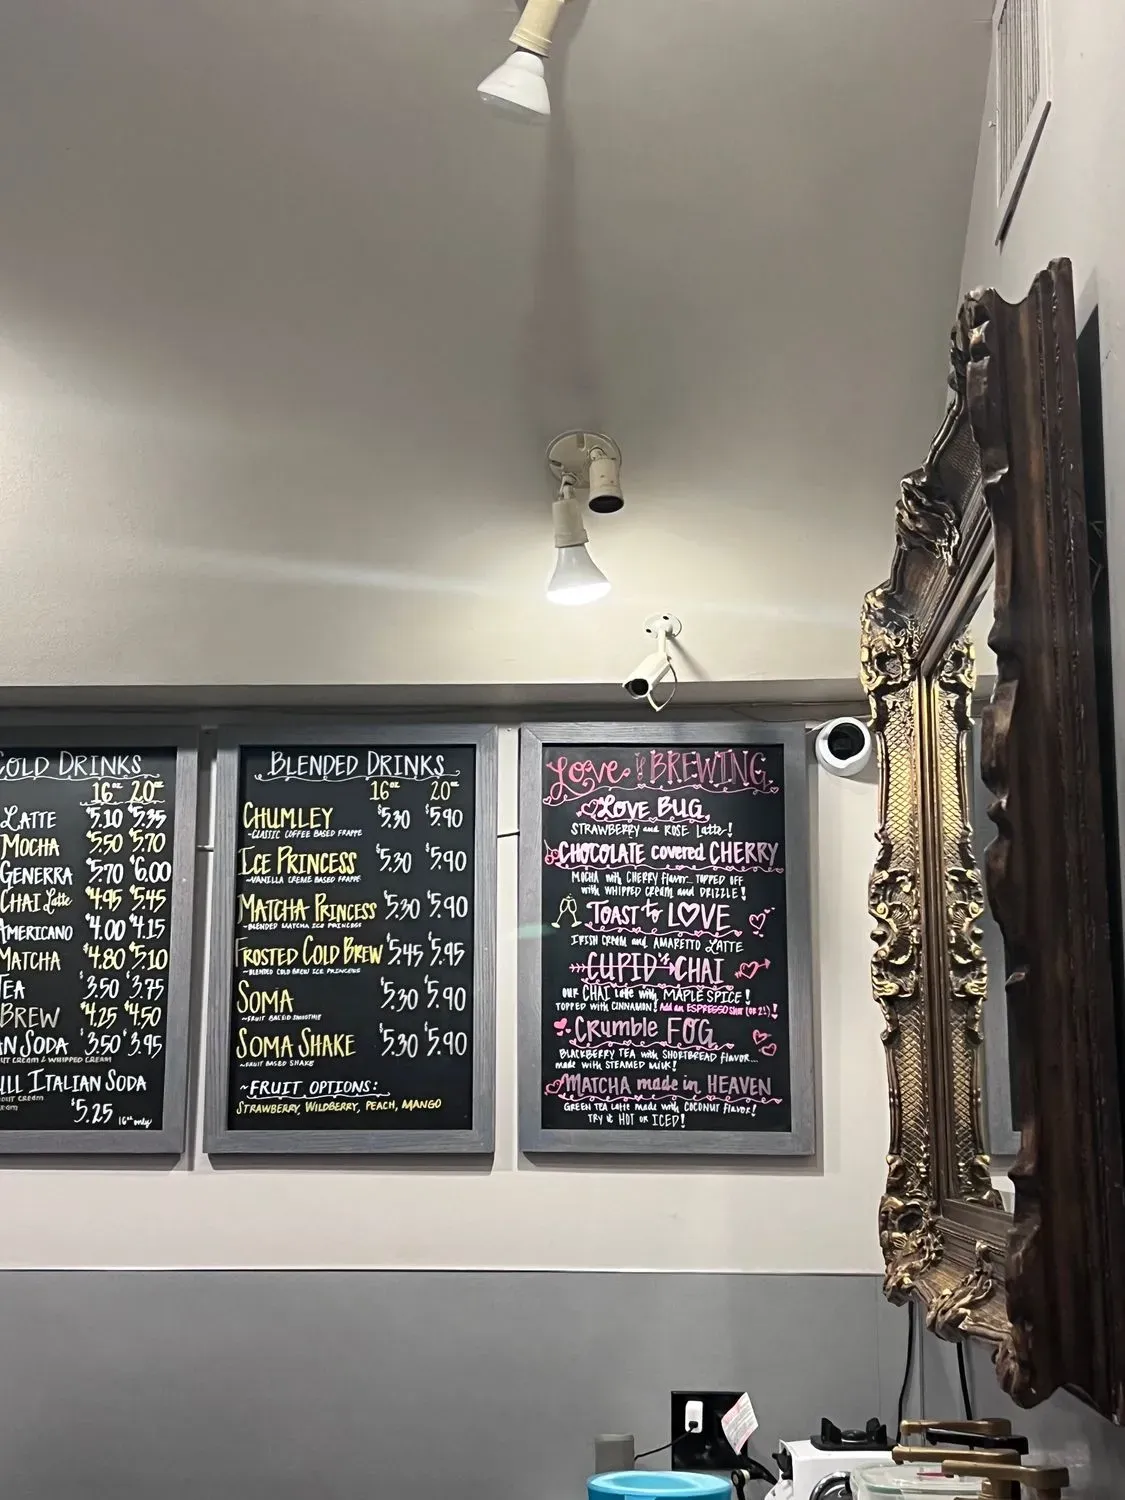 COLD DRINKS
16oz 20oz
LATTE $5.10 $5.35
MOCHA $5.50 $5.70
GENERRA $5.70 $6.00
CHAI Latte $4.95 $5.45
AMERICANO $4.00 $4.15
MATCHA $4.80 $5.10
TEA 3.50 $3.75
BREW $4.25 $4.50
AN SODA 3.50 $3.95
CREAM & WHIPPED CREAM
ULL ITALIAN SODA
CREAM
$5.25 16oz only
BLENDED DRINKS
16oz 20oz
CHUMLEY $5.30 $5.90
~CLASSIC COFFEE BASED FRAPPE
ICE PRINCESS $5.30 $5.90
~VANILLA CREME BASED FRAPPE
MATCHA PRINCESS $5.30 $5.90
~BLENDED MATCHA ICE PRINCESS
FROSTED COLD BREW $5.45 $5.95
~BLENDED COLD BREW ICE PRINCESS
SOMA $5.30 $5.90
~FRUIT BASED SMOOTHIE
SOMA SHAKE $5.30 $5.90
~FRUIT BASED SHAKE
~FRUIT OPTIONS:
STRAWBERRY, WILDBERRY, PEACH, MANGO
Love is BREWING
LOVE BUG
STRAWBERRY and ROSE Latte!
CHOCOLATE covered CHERRY
MOCHA with CHERRY flavor... TOPPED OFF
with WHIPPED CREAM and DRIZZLE!
TOAST to LOVE
IRISH CREAM and AMARETTO LATTE
CUPID'S CHAI
OUR CHAI latte with MAPLE SPICE!
TOPPED with CINNAMON! Add an ESPRESSO SHOT (OR 2!)!
Crumble FOG
BLACKBERRY TEA with SHORTBREAD flavor...
made with STEAMED MILK!
MATCHA made in HEAVEN
GREEN TEA Latte made with COCONUT flavor!
TRY it HOT or ICED!